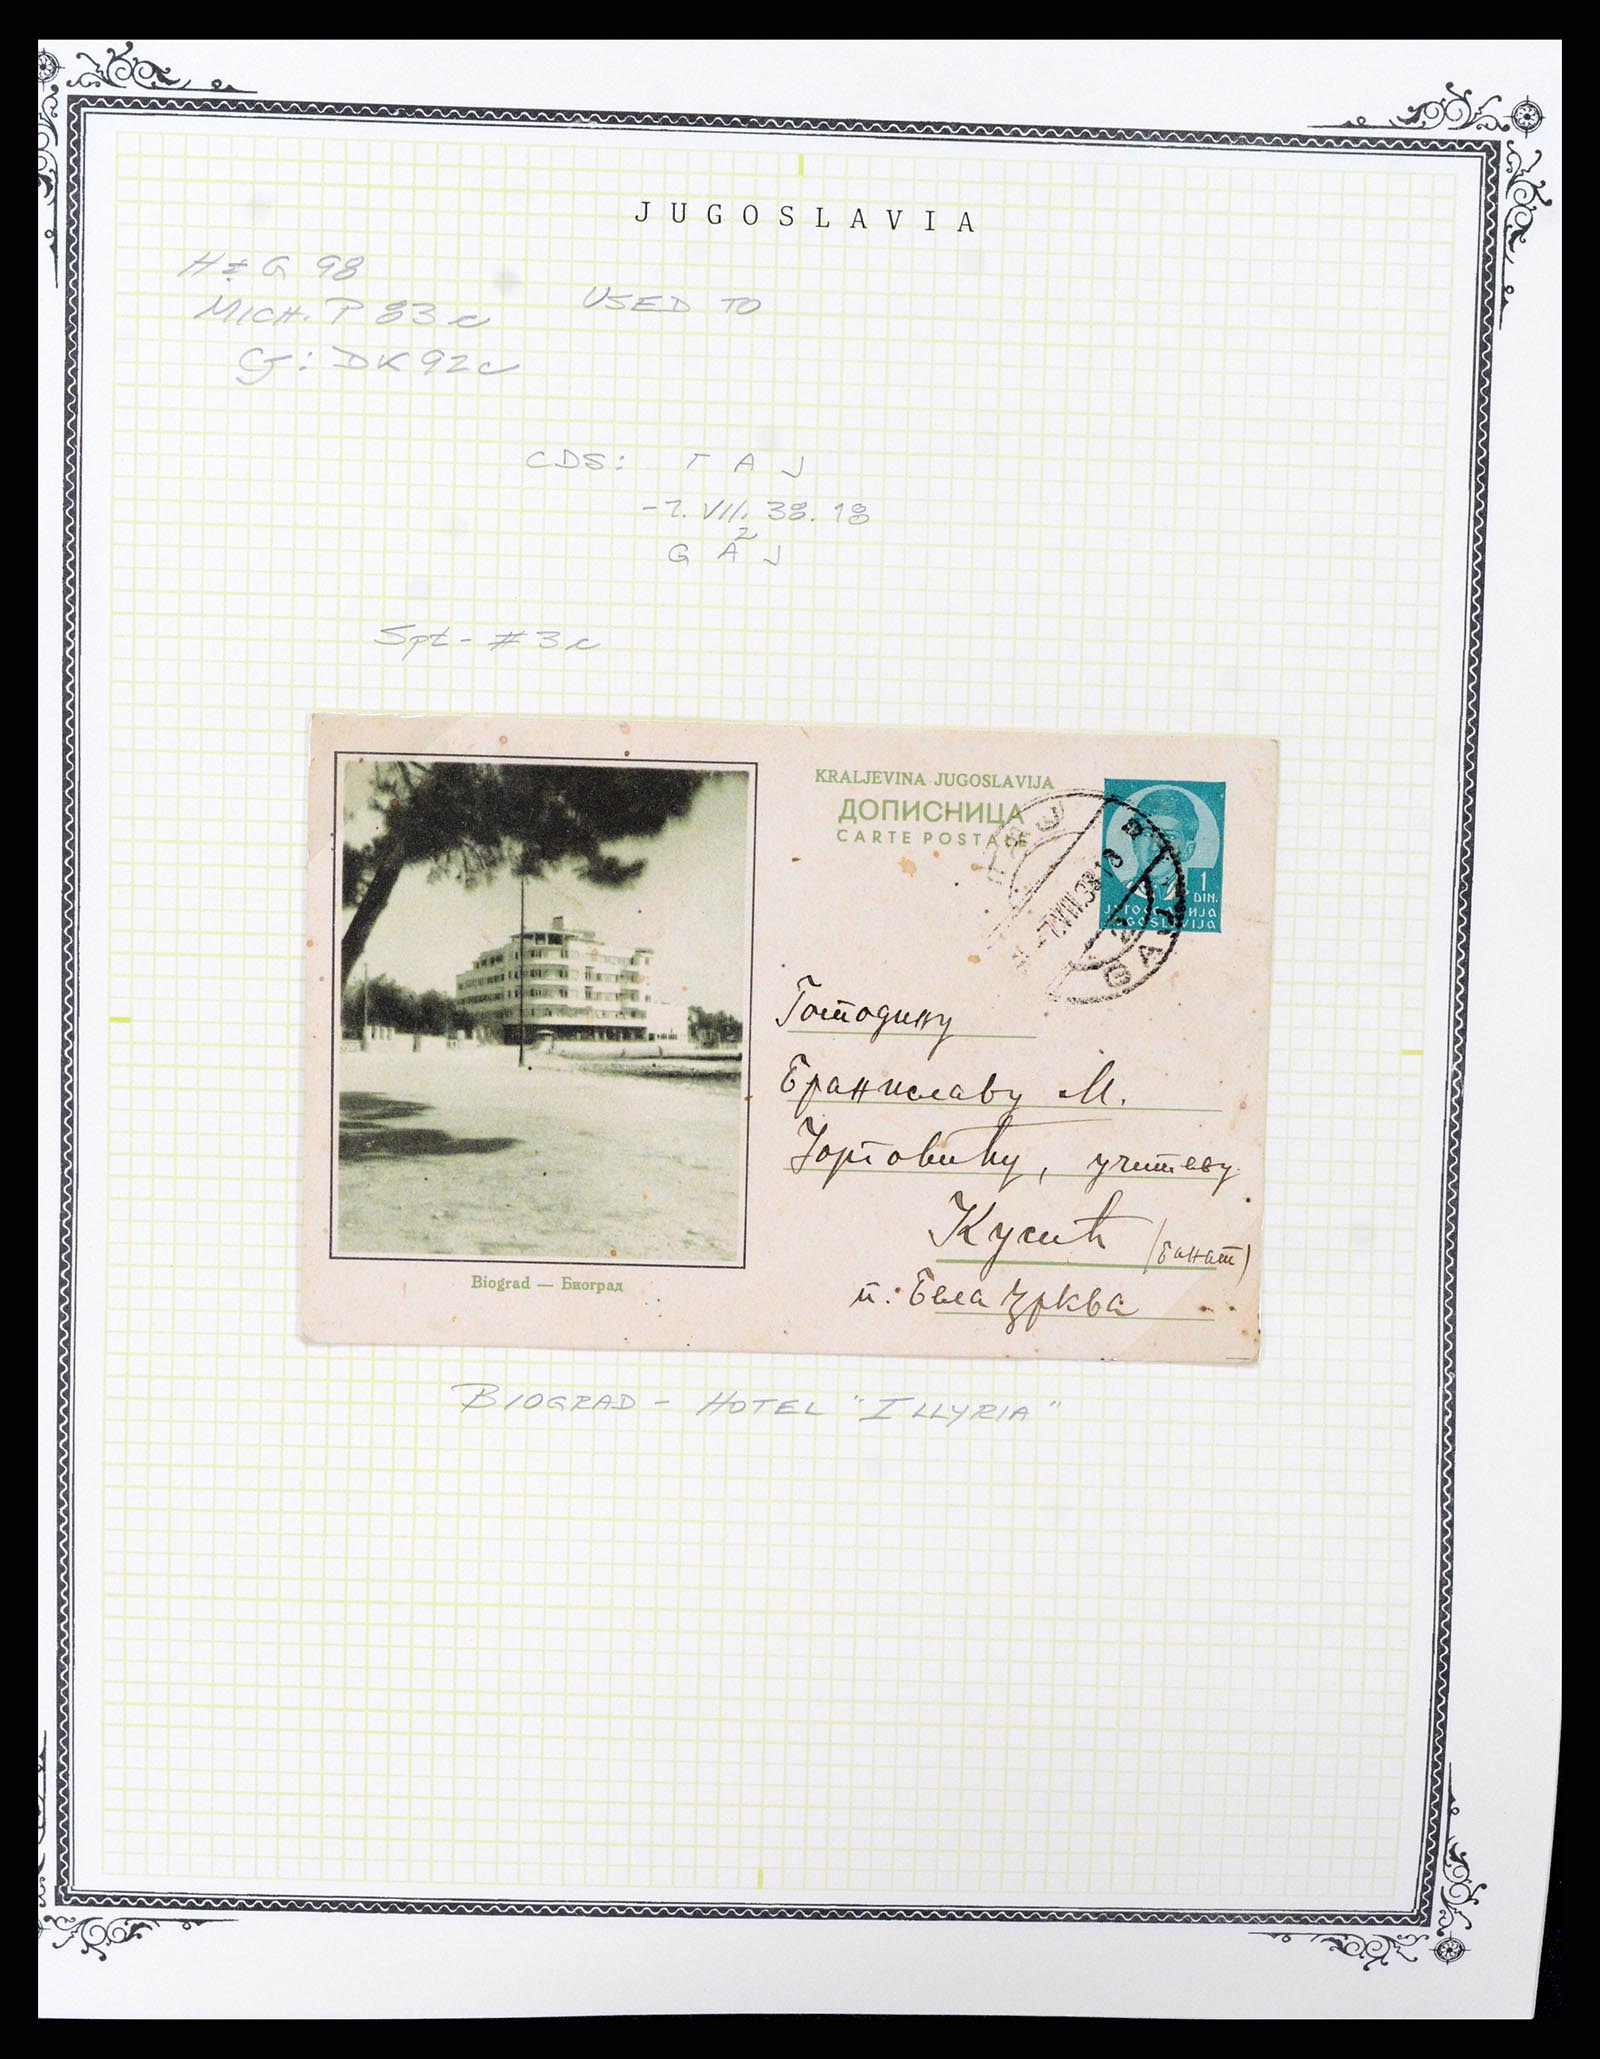 JUGOSLAVIA
H & G 98
MICH. P 83 c
USED TO
Cj: DK 92c
CDS: Г А Ј
-7. VII. 38. 18
2
G A J
Spt - #3c
KRALJEVINA JUGOSLAVIJA
ДОПИСНИЦА
CARTE POSTALE
1
DIN.
ЈУГОСЛАВИЈА
JUGOSLAVIJA
-7.VIII.38.18
Господину
Браниславу М.
учитељу
Кусић (Банат)
п: Бела Црква
Biograd — Биоград
BIOGRAD - HOTEL "ILLYRIA"